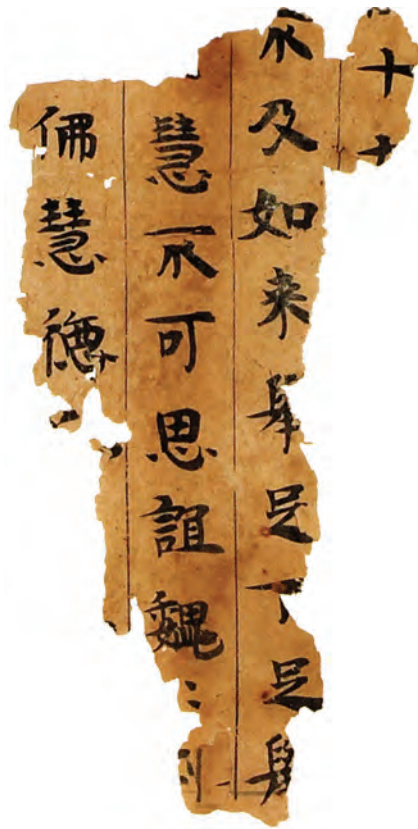 十十
不及如来舉足下足舉
慧不可思誼魏〻
佛慧德